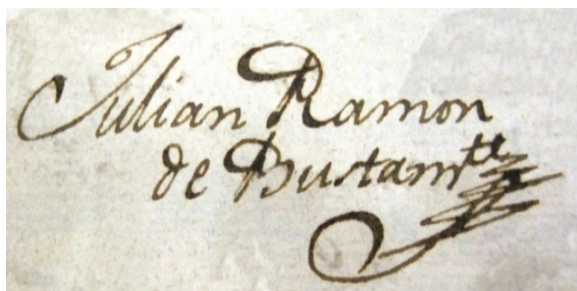 Julian Ramon
de Bustamtte